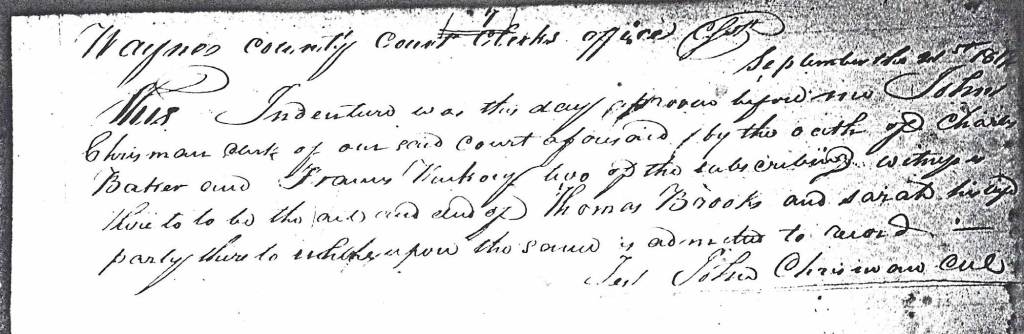 7
Waynes county Court Clerks office Sct
September the 21st 181
This Indenture was this day proven before me John
Chrisman clerk of our said court afousaid by the oath of Charles
Baker and Francis two of the subscribing witness
there to to be the act and deed of Thomas Brooks and sarah his wife
party there to whereupon the same is admitted to record —
Test John Chrisman CWC